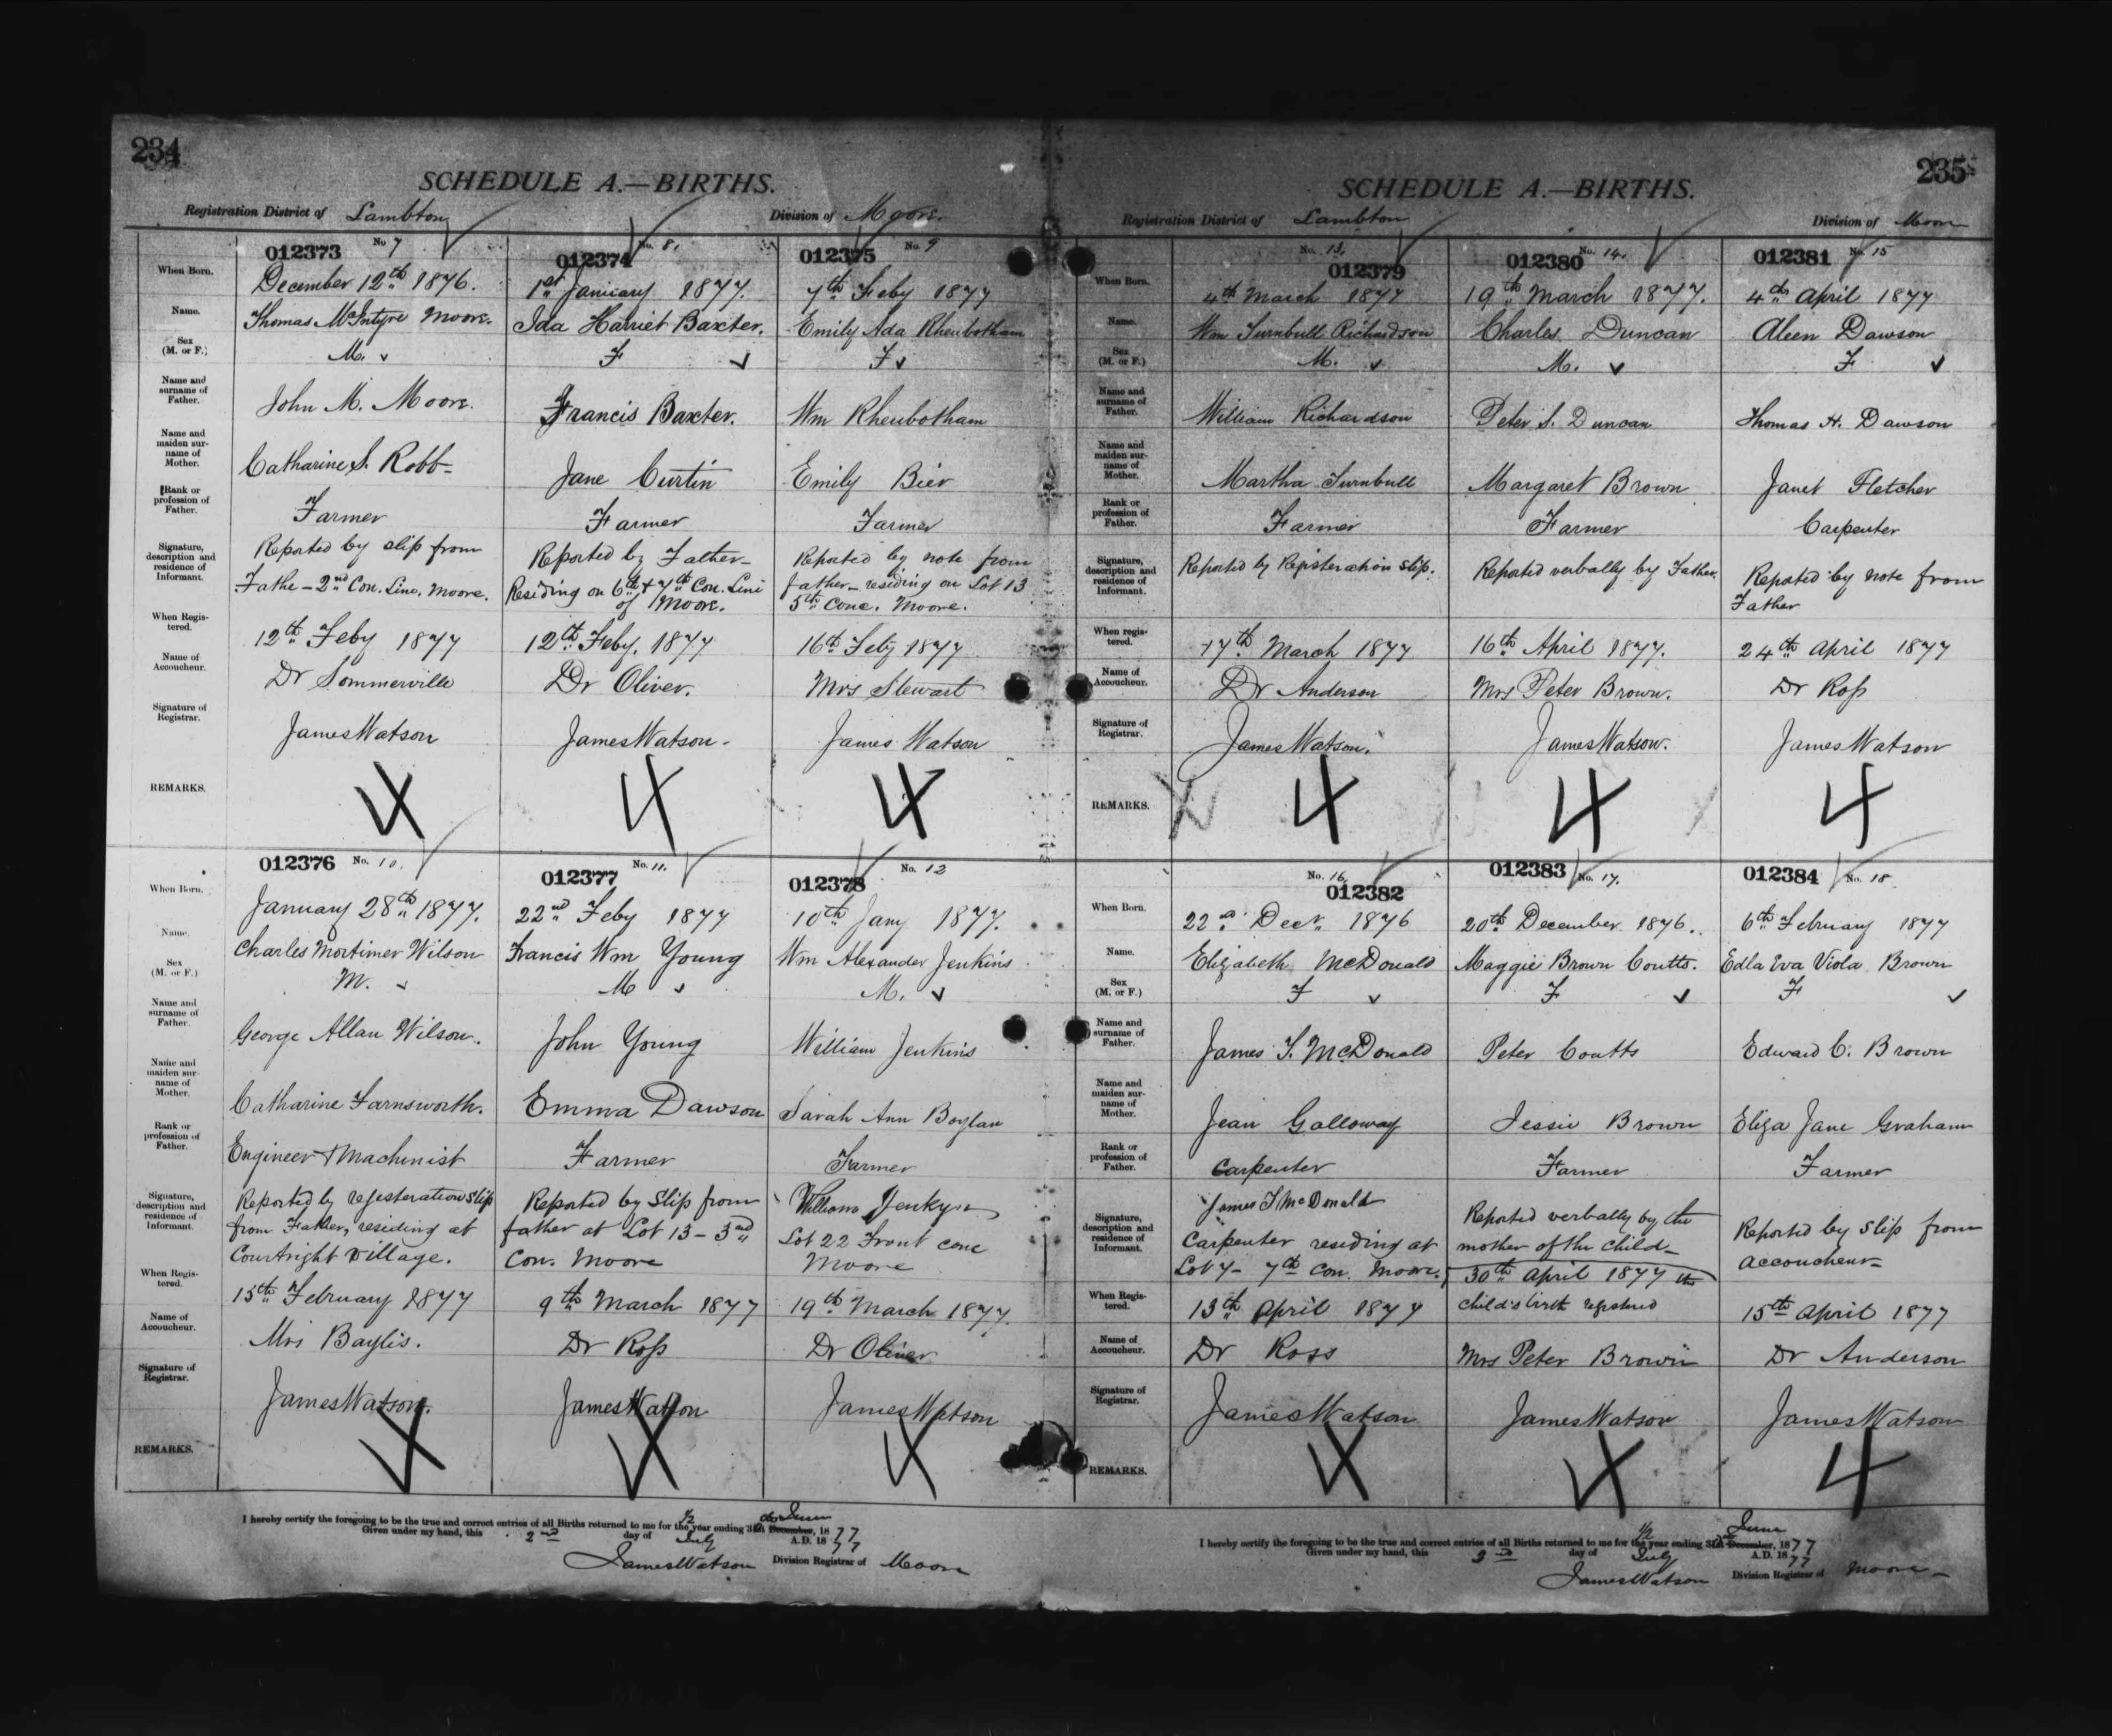 234
SCHEDULE A.—BIRTHS.
Registration District of Lambton Division of Moore.
012373 No 7
When Born. December 12th 1876.
Name. Thomas McIntyre Moore.
Sex (M. or F.) M.
Name and surname of Father. John M. Moore.
Name and maiden surname of Mother. Catharine S. Robb
Rank or profession of Father. Farmer
Signature, description and residence of Informant. Reported by slip from
Fathe - 2nd Con. Line, Moore.
When Registered. 12th Feby 1877
Name of Accoucheur. Dr Sommerville
Signature of Registrar. James Watson
REMARKS. 4
012374 No. 8.
1st January 1877.
Ida Harriet Baxter.
F
Francis Baxter.
Jane Curtin
Farmer
Reported by Father-
Residing on 6th & 7th Con. Line
of Moore.
12th Feby. 1877
Dr Oliver.
James Watson.
4
012375 No. 9
7th Feby 1877
Emily Ada Rheubotham
F
Wm Rheubotham
Emily Bier
Farmer
Reported by note from
father - residing on Lot 13
5th Conc. Moore.
16th Feby 1877
Mrs Stewart
James Watson
4
012376 No. 10.
When Born. January 28th 1877.
Name. Charles Mortimer Wilson
Sex (M. or F.) M.
Name and surname of Father. George Allan Wilson.
Name and maiden surname of Mother. Catharine Farnsworth.
Rank or profession of Father. Engineer & Machinist
Signature, description and residence of Informant. Reported by registeration slip
from Father, residing at
Courtright Village.
When Registered. 15th February 1877
Name of Accoucheur. Mrs Baylis.
Signature of Registrar. James Watson.
REMARKS. 4
012377 No. 11.
22nd Feby 1877
Francis Wm Young
M
John Young
Emma Dawson
Farmer
Reported by Slip from
father at Lot 13 - 3rd
Con. Moore
9th March 1877
Dr Ross
James Watson
4
012378 No. 12
10th Jany 1877.
Wm Alexander Jenkins
M.
William Jenkins
Sarah Ann Boylan
Farmer
William Jenkyns
Lot 22 Front conc
Moore
19th March 1877.
Dr Oliver
James Watson
4
I hereby certify the foregoing to be the true and correct entries of all Births returned to me for the 1/2 year ending 31st December, 1877
Given under my hand, this 2nd day of July A.D. 1877
James Watson Division Registrar of Moore
235
SCHEDULE A.—BIRTHS.
Registration District of Lambton Division of Moore
No. 13. 012379
When Born. 4th March 1877
Name. Wm Turnbull Richardson
Sex (M. or F.) M.
Name and surname of Father. William Richardson
Name and maiden surname of Mother. Martha Turnbull
Rank or profession of Father. Farmer
Signature, description and residence of Informant. Reported by Registeration slip.
When registered. 17th March 1877
Name of Accoucheur. Dr Anderson
Signature of Registrar. James Watson.
REMARKS. 4
012380 No. 14.
19th March 1877.
Charles Duncan
M.
Peter S. Duncan
Margaret Brown
Farmer
Reported verbally by Father.
16th April 1877.
Mrs Peter Brown.
James Watson.
4
012381 No. 15
4th April 1877
Aleen Dawson
F
Thomas H. Dawson
Janet Fletcher
Carpenter
Reported by note from
Father
24th April 1877
Dr Ross
James Watson
4
No. 16. 012382
When Born. 22nd Decr 1876
Name. Elizabeth McDonald
Sex (M. or F.) F
Name and surname of Father. James T. McDonald
Name and maiden surname of Mother. Jean Galloway
Rank or profession of Father. Carpenter
Signature, description and residence of Informant. James T McDonald
Carpenter residing at
Lot 7 - 7th Con. Moore.
When Registered. 13th April 1877
Name of Accoucheur. Dr Ross
Signature of Registrar. James Watson
REMARKS. 4
012383 No. 17.
20th December 1876.
Maggie Brown Coutts.
F
Peter Coutts
Jessie Brown
Farmer
Reported verbally by the
mother of the child-
30th April 1877 the
child's birth registered
Mrs Peter Brown
James Watson
4
012384 No. 18
6th February 1877
Edla Eva Viola Brown
F
Edward C. Brown
Eliza Jane Graham
Farmer
Reported by Slip from
accoucheur
15th April 1877
Dr Anderson
James Watson
4
I hereby certify the foregoing to be the true and correct entries of all Births returned to me for the 1/2 year ending 31st December, June 1877
Given under my hand, this 2nd day of July A.D. 1877
James Watson Division Registrar of Moore